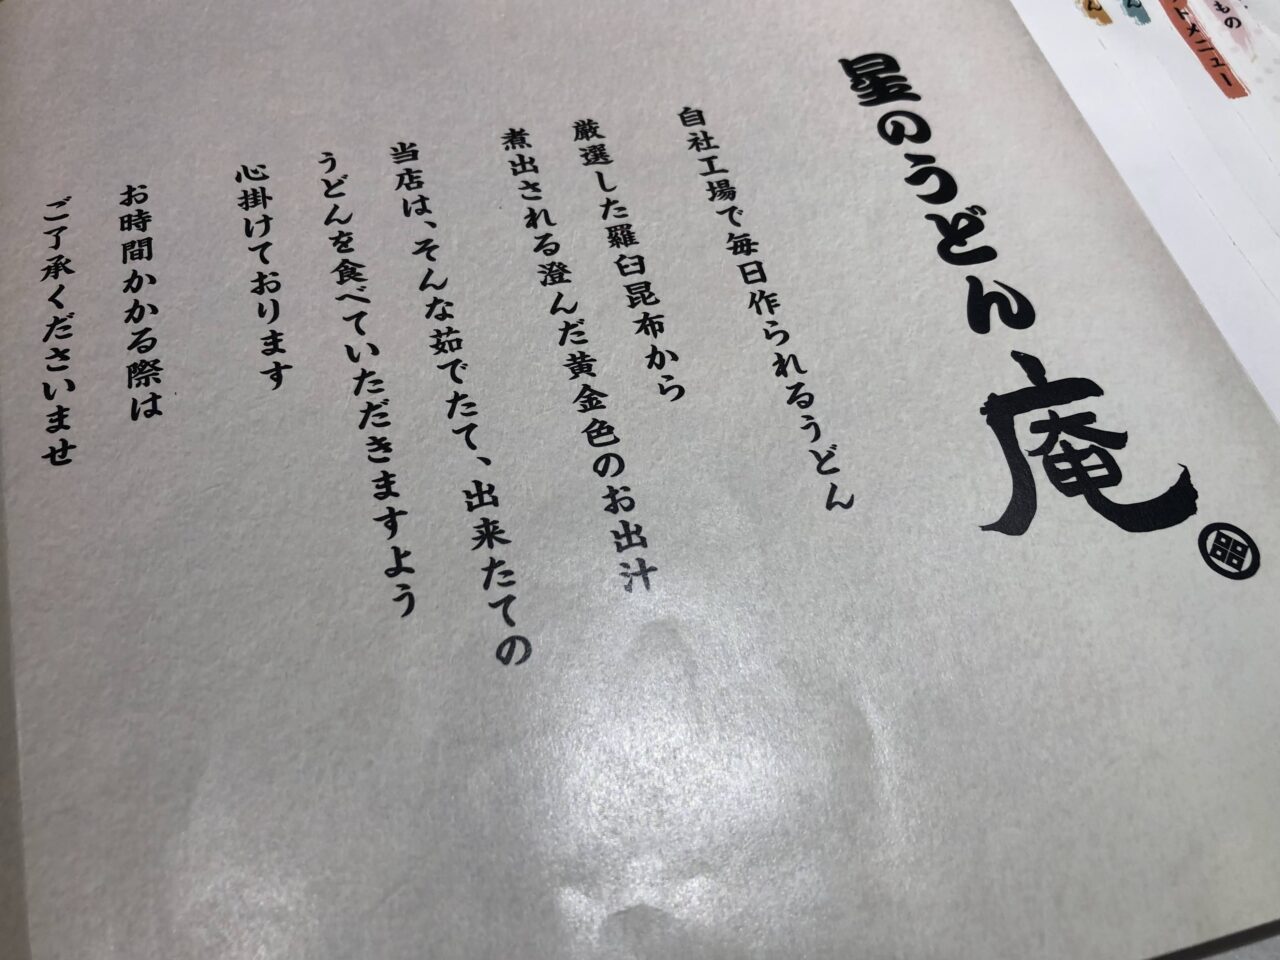 星のうどん庵
自社工場で毎日作られるうどん
厳選した羅臼昆布から
煮出される澄んだ黄金色のお出汁
当店は、そんな茹でたて、出来たての
うどんを食べていただきますよう
心掛けております
お時間かかる際は
ご了承くださいませ
もの
トメニュー
ん
ん